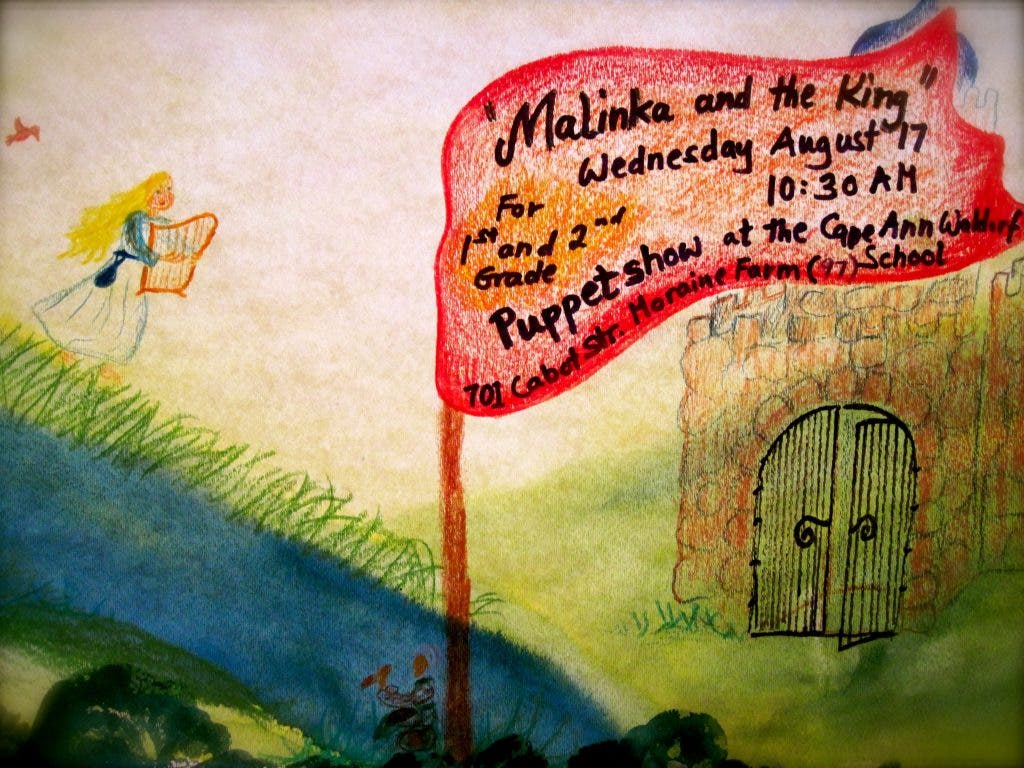 "Malinka and the King"
Wednesday August 17
10:30 AM
For
1st and 2nd
Grade
Puppet show at the Cape Ann Waldorf
School
701 Cabot Str. Moraine Farm (97)